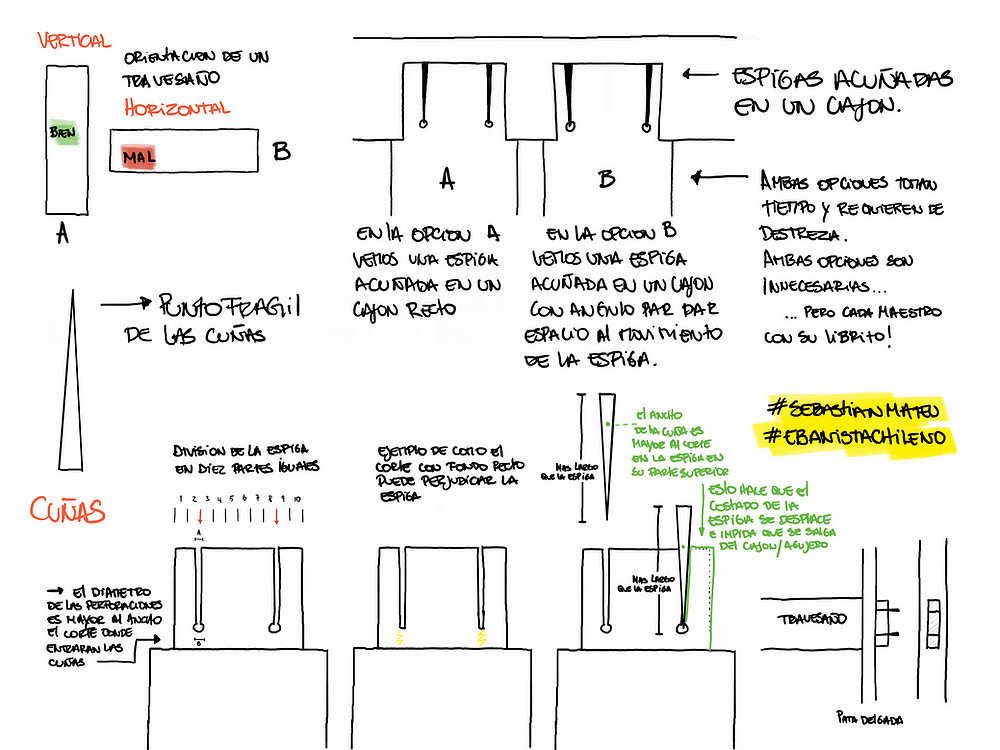 VERTICAL
ORIENTACION DE UN
TRAVESAÑO
HORIZONTAL
BIEN
MAL
B
A
A
B
ESPIGAS ACUÑADAS
EN UN CAJON.
AMBAS OPCIONES TOMAN
TIEMPO Y REQUIEREN DE
DESTREZA.
AMBAS OPCIONES SON
INNECESARIAS...
... PERO CADA MAESTRO
CON SU LIBRITO!
EN LA OPCION A
VEMOS UNA ESPIGA
ACUÑADA EN UN
CAJON RECTO
EN LA OPCION B
VEMOS UNA ESPIGA
ACUÑADA EN UN CAJON
CON ANGULO PAR DAR
ESPACIO AL MOVIMIENTO
DE LA ESPIGA.
PUNTO FRAGIL
DE LAS CUÑAS
CUÑAS
#SEBASTIANMATEU
#EBANISTACHILENO
DIVISION DE LA ESPIGA
EN DIEZ PARTES IGUALES
1 2 3 4 5 6 7 8 9 10
A
B
EL DIAMETRO
DE LAS PERFORACIONES
ES MAYOR AL ANCHO
EL CORTE DONDE
ENTRARAN LAS
CUÑAS
EJEMPLO DE COMO EL
CORTE CON FONDO RECTO
PUEDE PERJUDICAR LA
ESPIGA
MAS LARGO
QUE LA ESPIGA
EL ANCHO
DE LA CUÑA ES
MAYOR AL CORTE
EN LA ESPIGA EN
SU PARTE SUPERIOR
ESTO HACE QUE EL
COSTADO DE LA
ESPIGA SE DESPLACE
E IMPIDA QUE SE SALGA
DEL CAJON/AGUJERO
MAS LARGO
QUE LA ESPIGA
TRAVESAÑO
PATA DELGADA